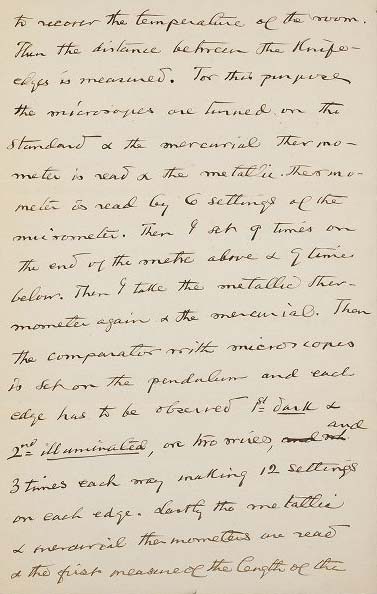 to recover the temperature of the room.
Then the distance between the Knife-
edges is measured. For this purpose
the microscopes are turned on the
standard & the mercurial thermo-
meter is read & the metallic thermo-
meter is read by 6 settings of the
micrometer. Then I set 9 times on
the end of the metre above & 9 times
below. Then I take the metallic ther-
mometer again & the mercurial. Then
the comparator with microscopes
is set on the pendulum and each
edge has to be observed 1st dark &
2nd illuminated, on two wires, and
3 times each way making 12 settings
on each edge. Lastly the metallic
& mercurial thermometers are read
& the first measure of the length of the